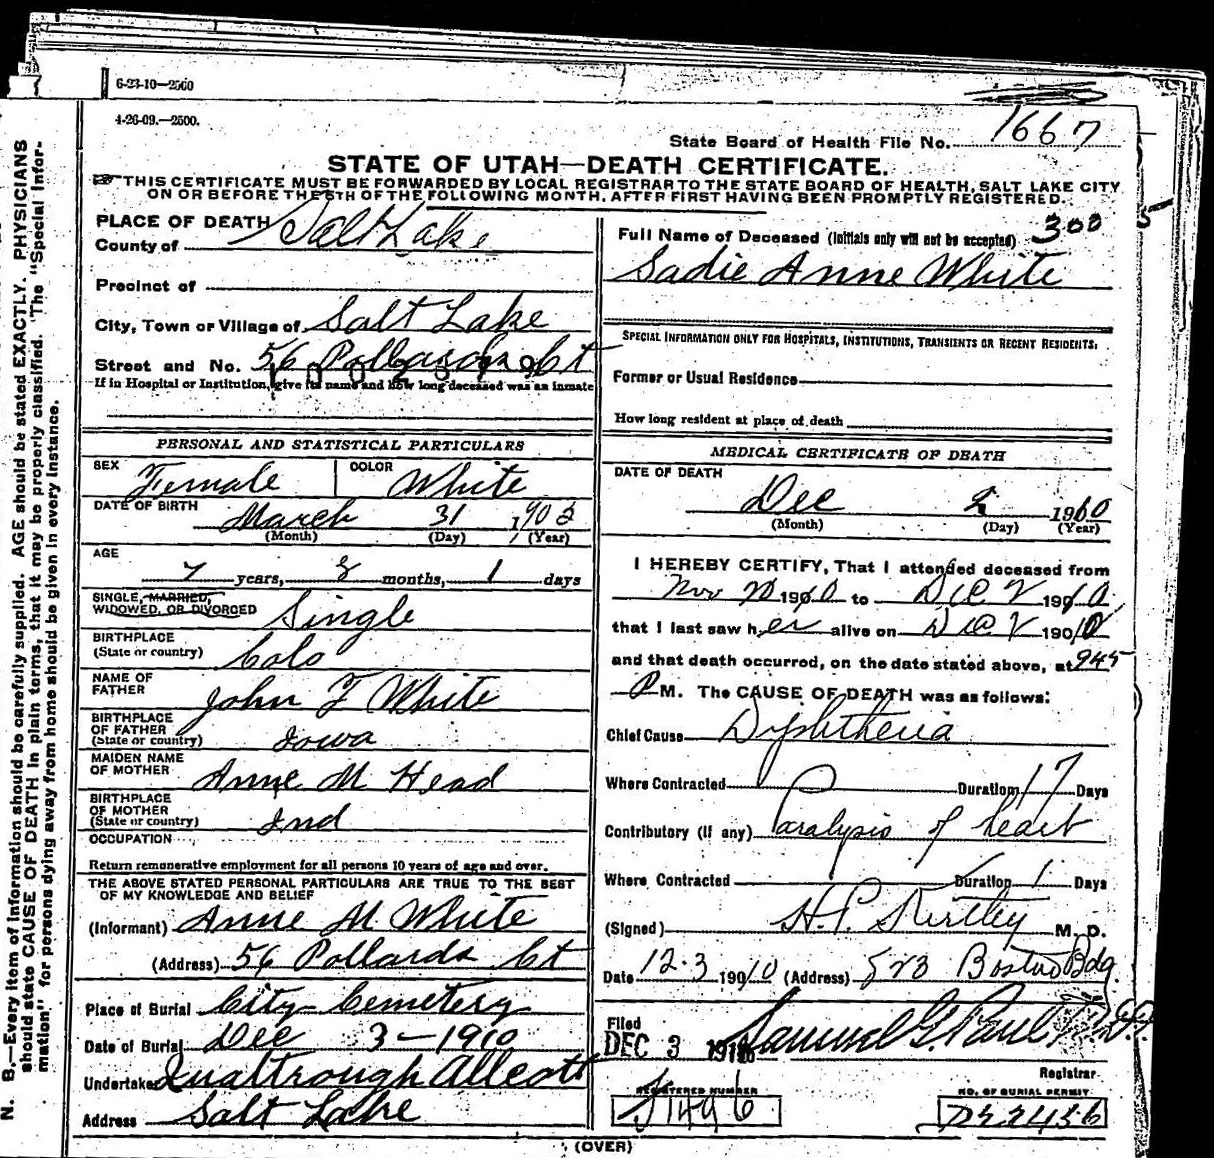 6-23-10—2500
4-26-09.—2500.
State Board of Health File No. 1667
STATE OF UTAH—DEATH CERTIFICATE.
THIS CERTIFICATE MUST BE FORWARDED BY LOCAL REGISTRAR TO THE STATE BOARD OF HEALTH, SALT LAKE CITY
ON OR BEFORE THE 5TH OF THE FOLLOWING MONTH, AFTER FIRST HAVING BEEN PROMPTLY REGISTERED.
PLACE OF DEATH
County of Salt Lake
Precinct of
City, Town or Village of Salt Lake
Street and No. 56 Ct
If in Hospital or Institution, give its name and how long deceased was an inmate
PERSONAL AND STATISTICAL PARTICULARS
SEX Female COLOR White
DATE OF BIRTH March 31 1903
(Month) (Day) (Year)
AGE
7 years, 8 months, 1 days
SINGLE, MARRIED,
WIDOWED, OR DIVORCED Single
BIRTHPLACE
(State or country) Colo
NAME OF
FATHER John F White
BIRTHPLACE
OF FATHER
(State or country) Iowa
MAIDEN NAME
OF MOTHER Anne M Head
BIRTHPLACE
OF MOTHER
(State or country) Ind
OCCUPATION
Return remunerative employment for all persons 10 years of age and over.
THE ABOVE STATED PERSONAL PARTICULARS ARE TRUE TO THE BEST
OF MY KNOWLEDGE AND BELIEF
(Informant) Anne M White
(Address) 56 Pollards Ct
Place of Burial City Cemetery
Date of Burial Dec 3-1910
Undertaker Qualtrough Allcott
Address Salt Lake
300
5
Full Name of Deceased (Initials only will not be accepted)
Sadie Anne White
SPECIAL INFORMATION ONLY FOR HOSPITALS, INSTITUTIONS, TRANSIENTS OR RECENT RESIDENTS:
Former or Usual Residence
How long resident at place of death
MEDICAL CERTIFICATE OF DEATH
DATE OF DEATH
Dec 2 1910
(Month) (Day) (Year)
I HEREBY CERTIFY, That I attended deceased from
Nov 20 1910 to Dec 2 1910,
that I last saw her alive on Dec 2 1910
and that death occurred, on the date stated above, at 945
P M. The CAUSE OF DEATH was as follows:
Chief Cause Dyphtheria
Where Contracted Duration 17 Days
Contributory (if any) Paralysis of heart
Where Contracted Duration 1 Days
(Signed) H. P. Kirtley M. D.
Date 12.3 1910 (Address) 523 Boston Bdg
Filed
DEC 3 1910 Samuel G. Paul
Registrar
REGISTERED NUMBER
J1496
NO. OF BURIAL PERMIT
D22436
(OVER)
N. B.—Every item of information should be carefully supplied. AGE should be stated EXACTLY. PHYSICIANS
should state CAUSE OF DEATH in plain terms, that it may be properly classified. The "Special Infor-
mation" for persons dying away from home should be given in every instance.